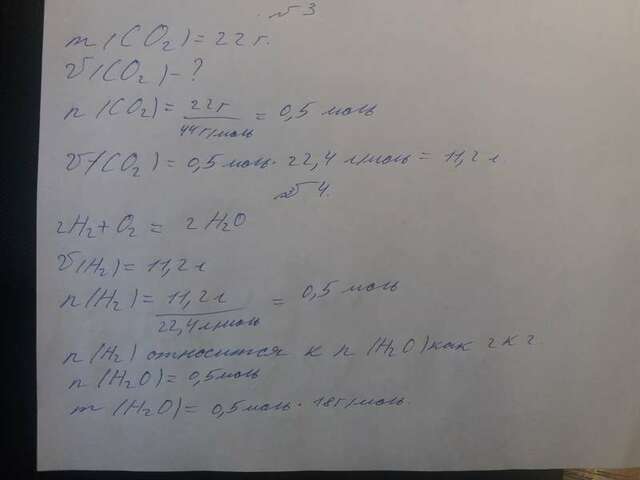 №3
m(CO₂) = 22 г.
V(CO₂) - ?
n(CO₂) = 22 г / 44 г/моль = 0,5 моль
V(CO₂) = 0,5 моль · 22,4 л/моль = 11,2 л.
№4.
2H₂ + O₂ = 2H₂O
V(H₂) = 11,2 л
n(H₂) = 11,2 л / 22,4 л/моль = 0,5 моль
n(H₂) относится к n(H₂O) как 2 к 2.
n(H₂O) = 0,5 моль
m(H₂O) = 0,5 моль · 18 г/моль